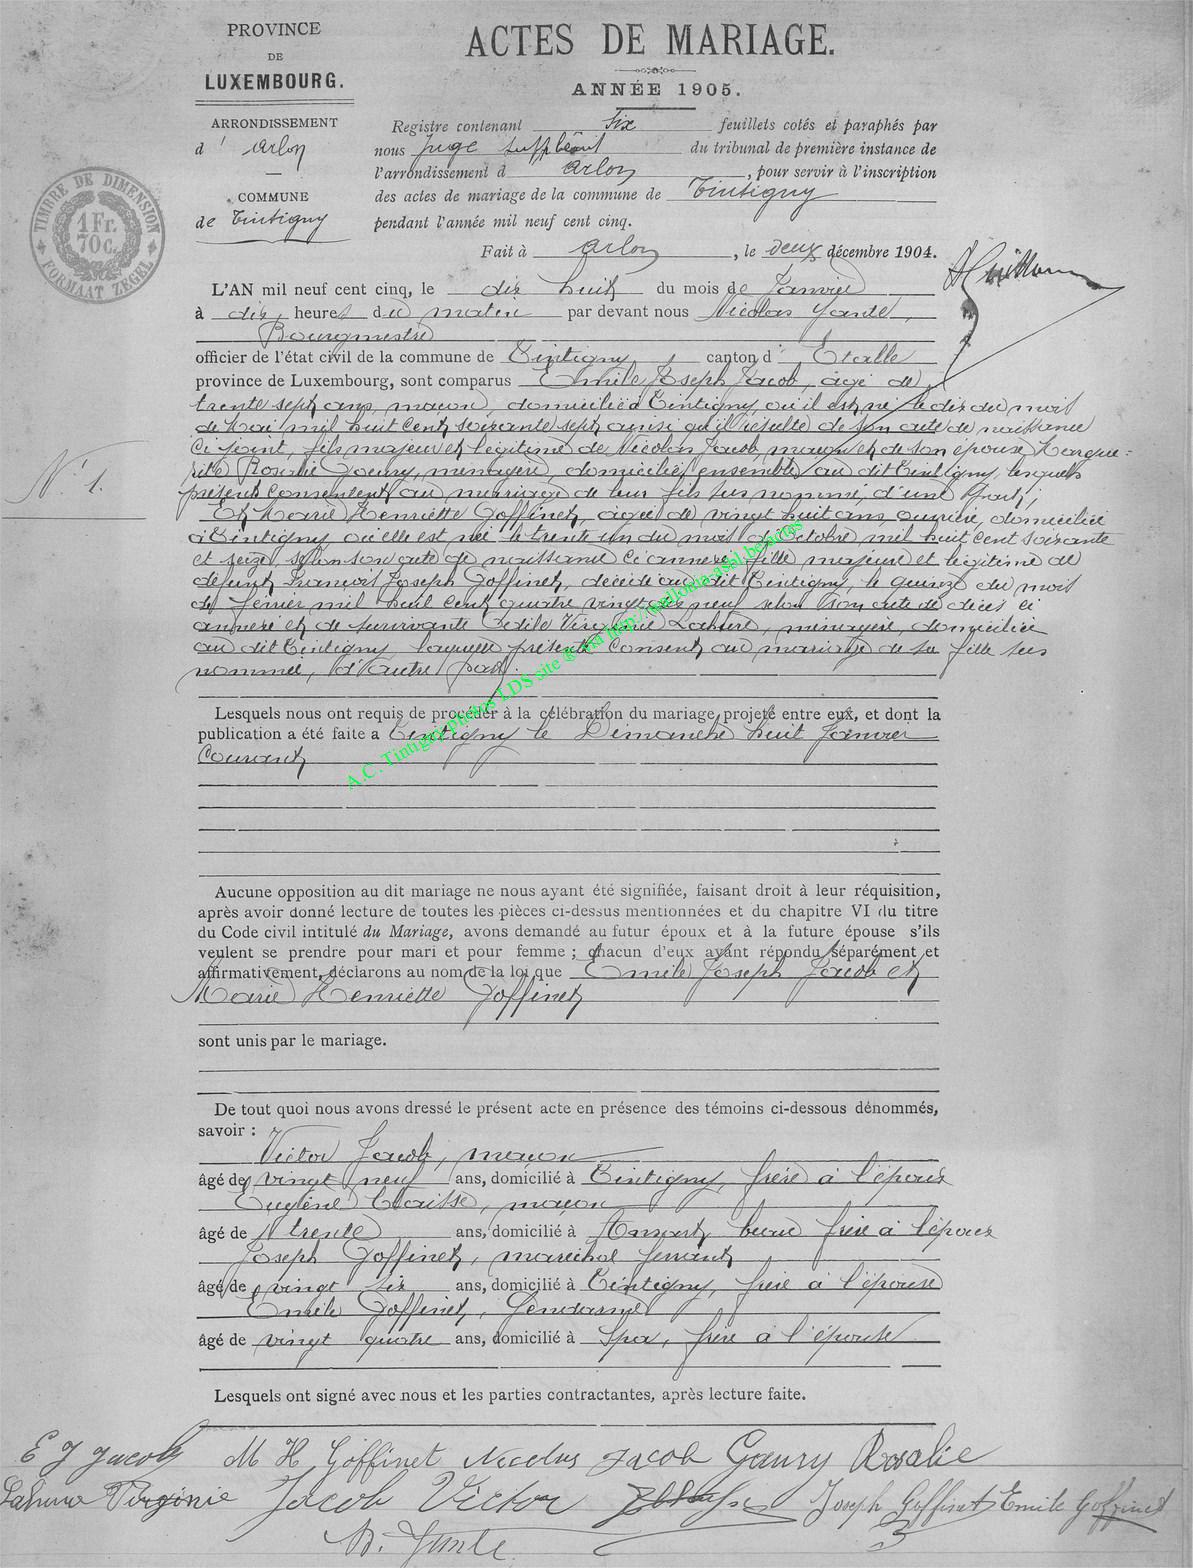 PROVINCE
DE
LUXEMBOURG.
ARRONDISSEMENT
d' Arlon
COMMUNE
de Tintigny
TIMBRE DE DIMENSION
1 Fr.
70 C.
FORMAAT ZEGEL
ACTES DE MARIAGE.
ANNÉE 1905.
Registre contenant six feuillets cotés et paraphés par
nous Juge suppléant du tribunal de première instance de
l'arrondissement d Arlon, pour servir à l'inscription
des actes de mariage de la commune de Tintigny
pendant l'année mil neuf cent cinq.
Fait à Arlon, le deux décembre 1904.
N° 1.
L'AN mil neuf cent cinq, le dix huit du mois de Janvier
à dix heures du matin par devant nous Nicolas
Bourgmestre
officier de l'état civil de la commune de Tintigny, canton d' Etalle
province de Luxembourg, sont comparus Emile Joseph Jacob, âgé de
trente sept ans, maçon, domicilié à Tintigny où il est né le dix du mois
de Mai mil huit cent soixante sept ainsi qu'il résulte de son acte de naissance
ci joint, fils majeur et légitime de Nicolas Jacob, maçon et de son épouse Margue-
rite Rosalie Goury, ménagère, domiciliés ensemble au dit Tintigny, lesquels
présents consentent au mariage de leur fils sus nommé, d'une part;
Et Marie Henriette Goffinet, âgée de vingt huit ans, ouvrière, domiciliée
à Tintigny où elle est née le trente un du mois d'Octobre mil huit cent soixante
et seize, selon son acte de naissance ci annexé, fille majeure et légitime de
défunt François Joseph Goffinet, décédé au dit Tintigny, le quinze du mois
de février mil huit cent quatre vingt dix neuf selon son acte de décès ci
annexé et de survivante Virginie Lahure, ménagère, domiciliée
au dit Tintigny, laquelle présente consent au mariage de sa fille sus
nommée, d'autre part.
A.C. Tintigny photos LDS site @ via http://wallonia-asbl.be/actes
Lesquels nous ont requis de procéder à la célébration du mariage projeté entre eux, et dont la
publication a été faite à Tintigny le Dimanche huit Janvier
courant
Aucune opposition au dit mariage ne nous ayant été signifiée, faisant droit à leur réquisition,
après avoir donné lecture de toutes les pièces ci-dessus mentionnées et du chapitre VI du titre
du Code civil intitulé du Mariage, avons demandé au futur époux et à la future épouse s'ils
veulent se prendre pour mari et pour femme ; chacun d'eux ayant répondu séparément et
affirmativement, déclarons au nom de la loi que Emile Joseph Jacob et
Marie Henriette Goffinet
sont unis par le mariage.
De tout quoi nous avons dressé le présent acte en présence des témoins ci-dessous dénommés,
savoir :
Victor Jacob, maçon
âgé de vingt neuf ans, domicilié à Tintigny, frère à l'époux
Eugène Claisse, maçon
âgé de trente ans, domicilié à beau frère à l'époux
Joseph Goffinet, maréchal ferrant
âgé de vingt six ans, domicilié à Tintigny, frère à l'épouse
Emile Goffinet, Gendarme
âgé de vingt quatre ans, domicilié à Spa, frère à l'épouse
Lesquels ont signé avec nous et les parties contractantes, après lecture faite.
E J Jacob M H Goffinet Nicolas Jacob Goury Rosalie
Lahure Virginie Jacob Victor Joseph Goffinet Emile Goffinet